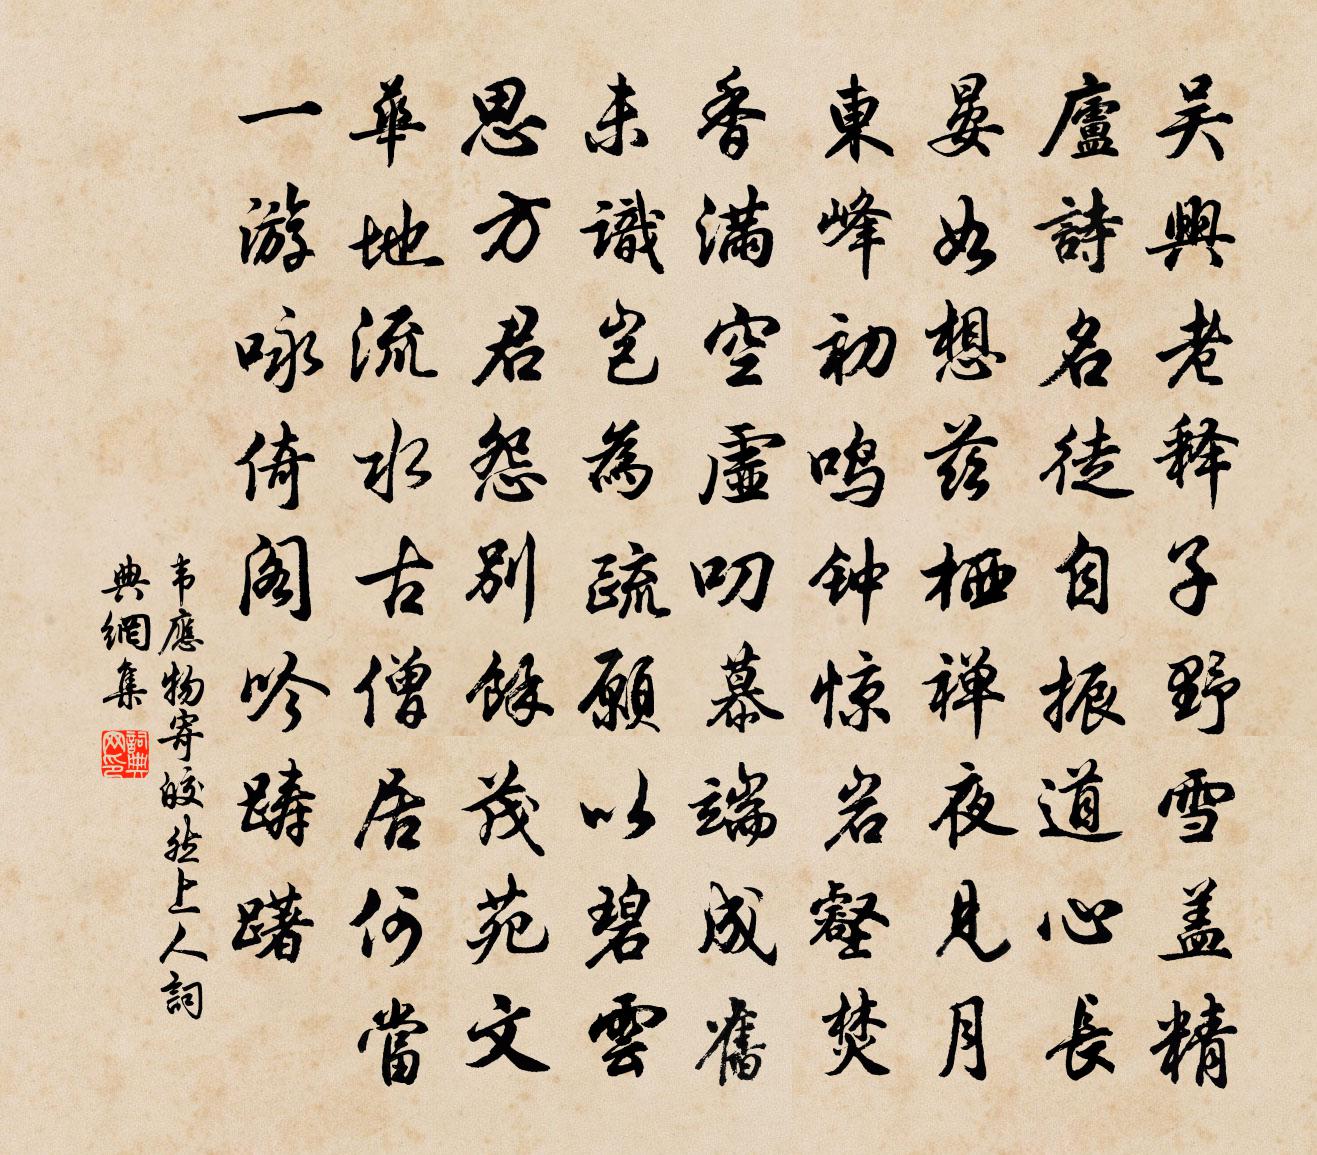 吴興老释子野雪盖精
廬詩名徒自振道心長
晏如想茲栖禅夜見月
東峰初鸣钟惊岩壑焚
香满空虚叨慕端成舊
未識岂為疏願以碧雲
思方君怨别餘茂苑文
華地流水古僧居何當
一游咏倚阁吟踌躇
韦應物寄皎然上人詞
典網集
詞典网印